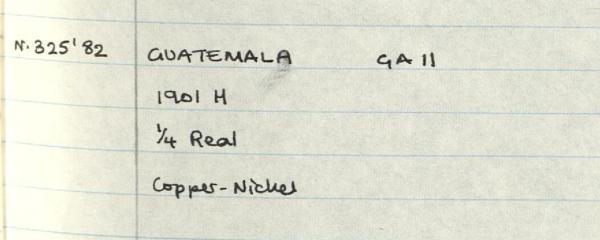 N.325'82 GUATEMALA GA 11
1901 H
1/4 Real
Copper-Nickel